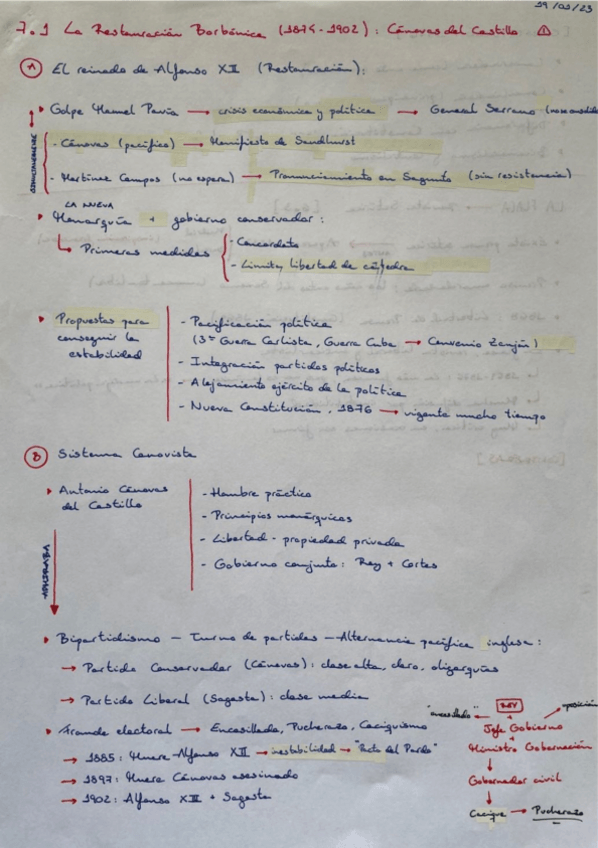 19/01/23
7.1 La Restauración Borbónica (1874-1902): Cánovas del Castillo
A El reinado de Alfonso XII (Restauración):
Golpe Manuel Pavía → crisis económica y política → General Serrano
SIMULTÁNEAMENTE
- Cánovas (pacífico) → Manifiesto de Sandhurst
- Martínez Campos (no espera) → Pronunciamiento en Sagunto (sin resistencia)
LA NUEVA
Monarquía + gobierno conservador:
Primeras medidas
- Concordato
- Limita libertad de cátedra
Propuestas para conseguir la estabilidad
- Pacificación política
(3ª Guerra Carlista, Guerra Cuba → Convenio Zanjón)
- Integración partidos políticos
- Alejamiento ejército de la política
- Nueva Constitución, 1876 → vigente mucho tiempo
B Sistema Canovista
Antonio Cánovas
del Castillo
- Hombre práctico
- Principios monárquicos
- Libertad - propiedad privada
- Gobierno conjunto: Rey + Cortes
Bipartidismo - Turno de partidos - Alternancia pacífica inglesa:
→ Partido Conservador (Cánovas): clase alta, clero, oligarquías
→ Partido Liberal (Sagasta): clase media
Fraude electoral → Encasillado, Pucherazo, Caciquismo
→ 1885: Muere Alfonso XII → inestabilidad → "Pacto del Pardo"
→ 1897: Muere Cánovas asesinado
→ 1902: Alfonso XIII + Sagasta
REY
"encasillado" ← Jefe Gobierno → oposición
+
Ministro Gobernación
Gobernador civil
Cacique → Pucherazo